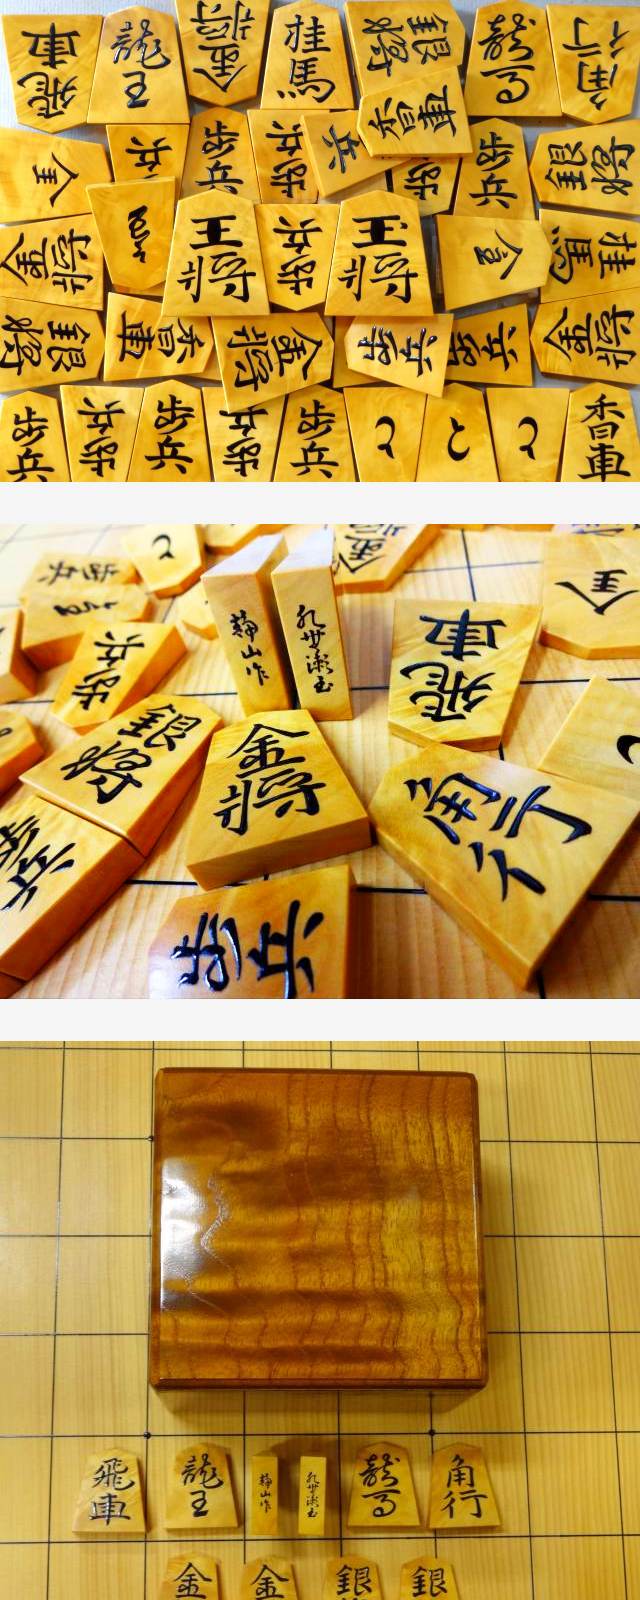 飛車
龍王
金将
桂馬
銀将
龍馬
角行
香車
全
歩兵
歩兵
歩兵
歩兵
歩兵
歩兵
銀将
金将
王将
歩兵
王将
桂馬
銀将
香車
金将
歩兵
歩兵
金将
歩兵
歩兵
歩兵
歩兵
歩兵
と
と
と
香車
歩兵
と
金将
静山作
飛車
全
歩兵
銀将
金将
角行
歩兵
歩兵
飛車
龍王
静山作
龍馬
角行
金
金
銀
銀